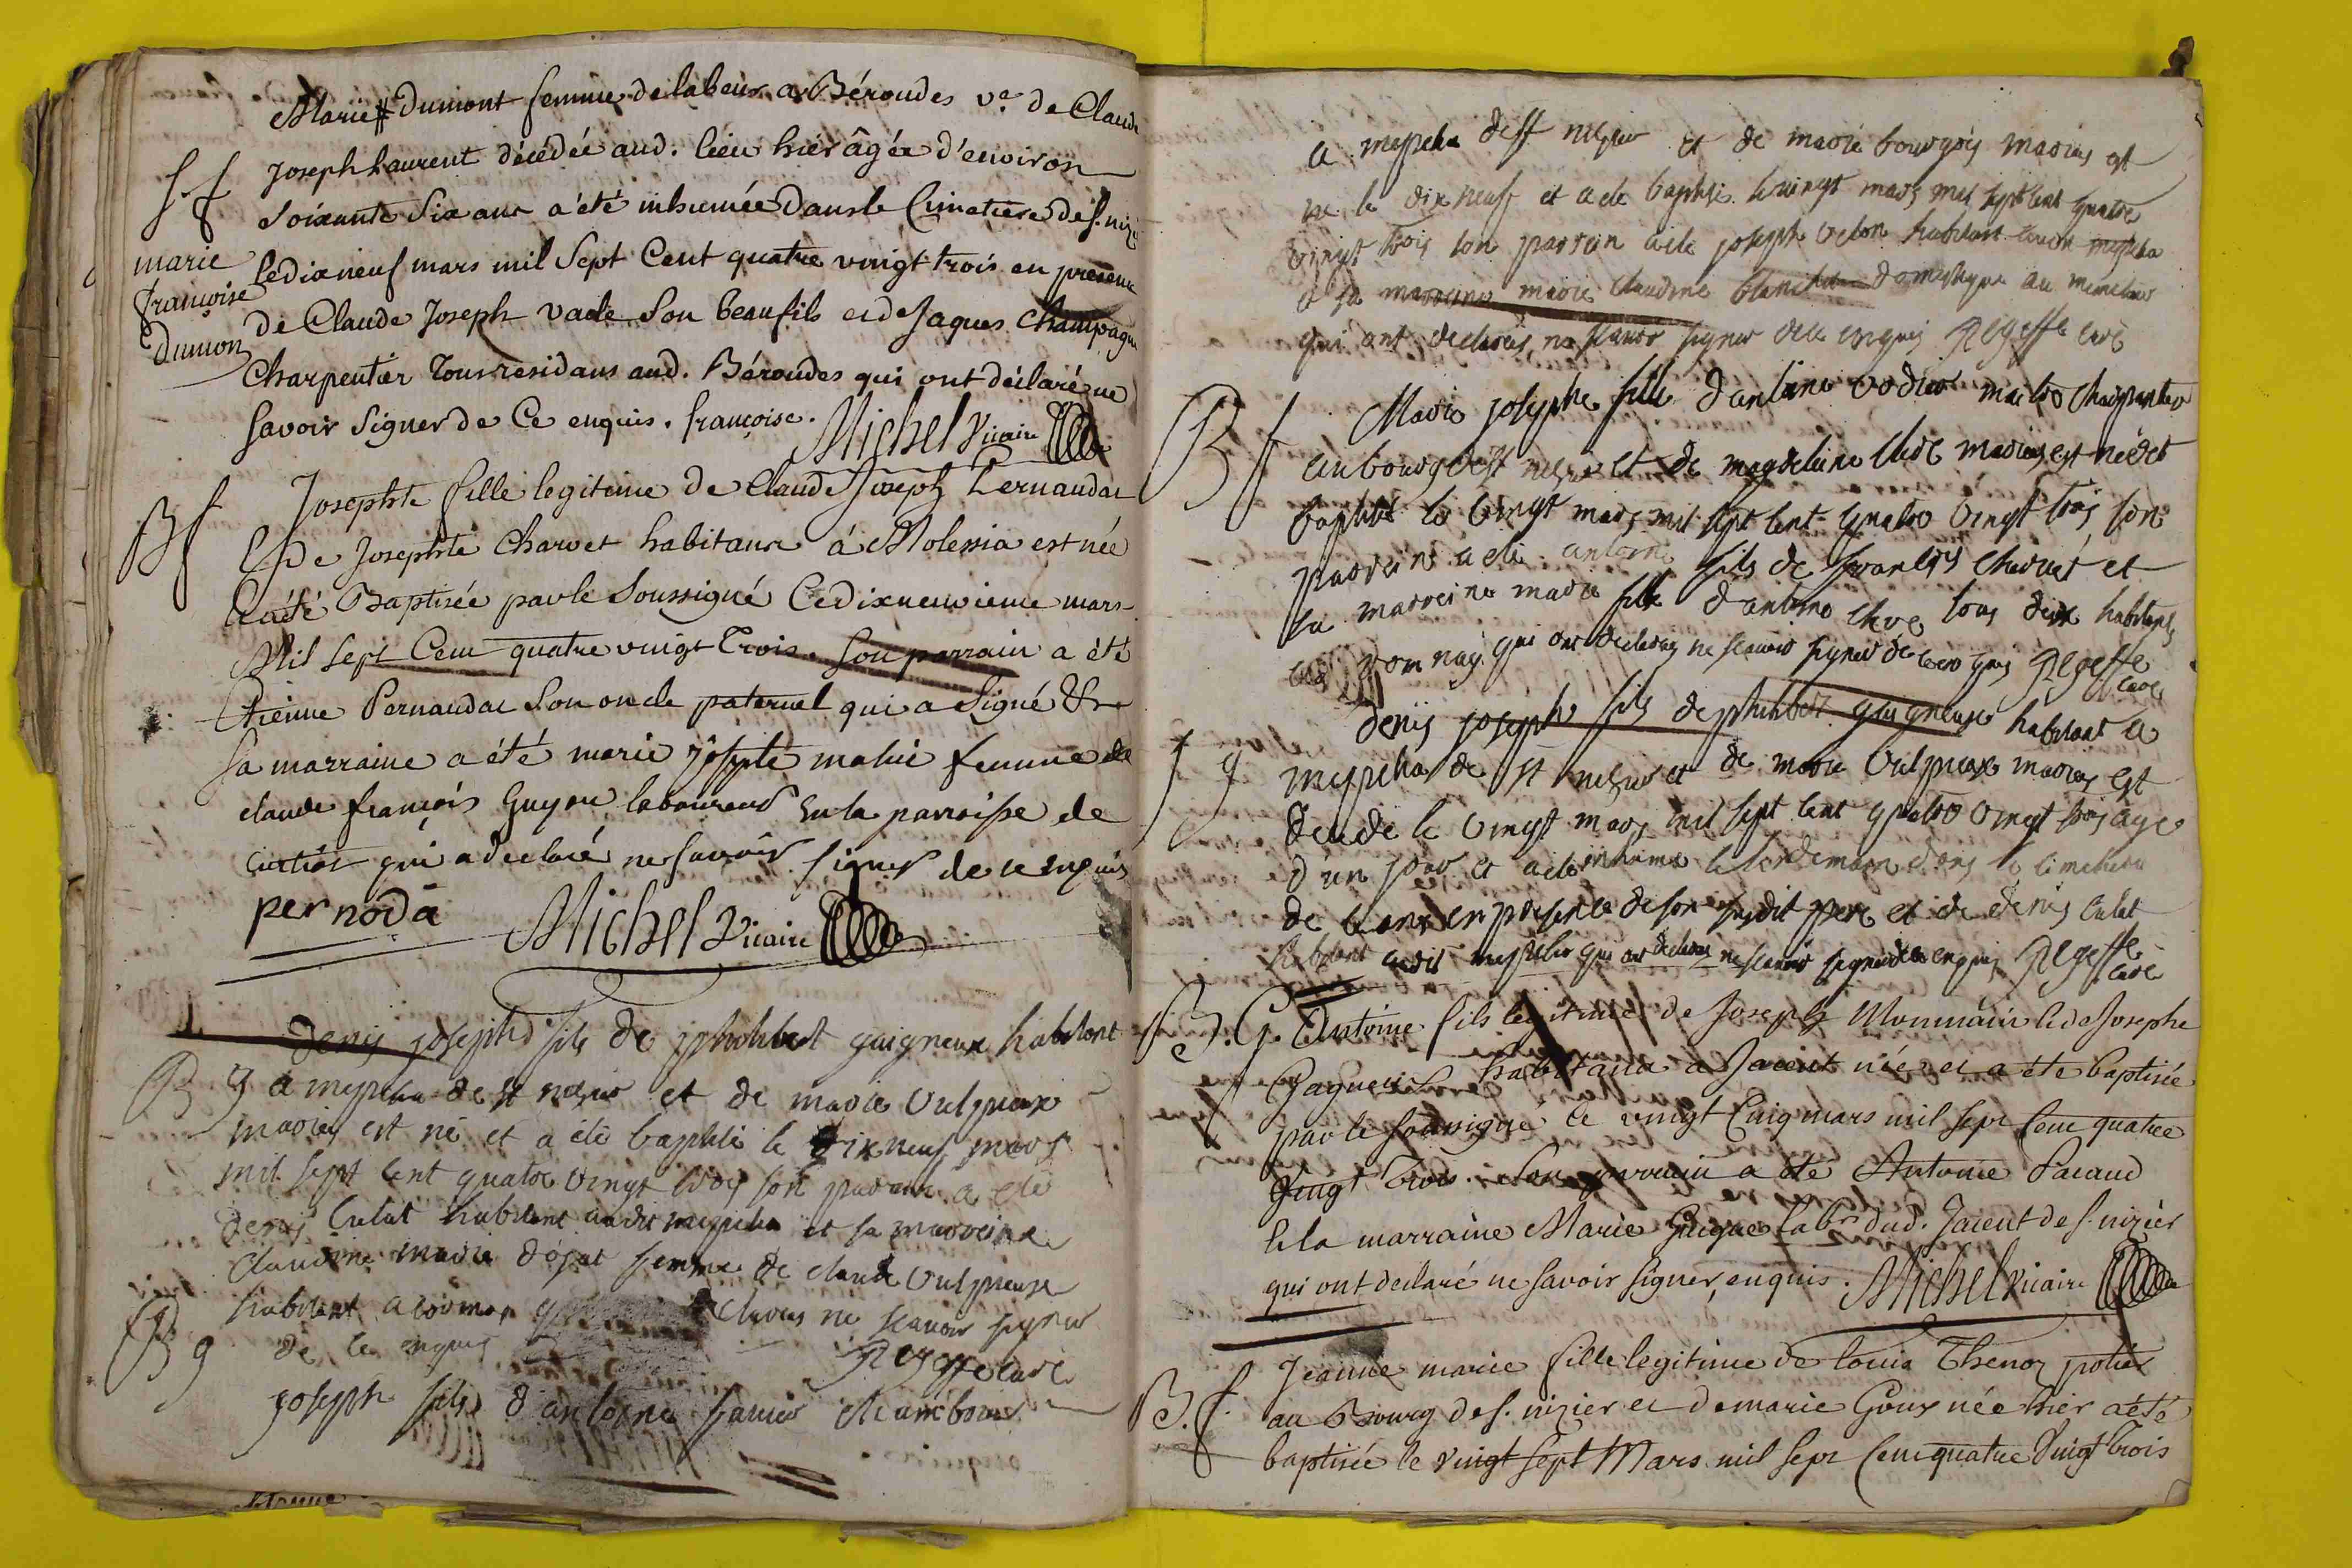 Marie # Dumont femme de labeur a Béroudes ve. de Claude
Joseph Laurent décédée aud. lieu hier âgée d'environ
Soixante Six ans a été inhumée dans le Cimetiere de s. nizi
le dixneuf mars mil Sept Cent quatre vingt trois en presence
de Claude Joseph vade Son beaufils et de Jaques Champagne
Charpentier Tous residans aud. Béroudes qui ont déclaré ne
Savoir Signer de Ce enquis. françoise. Michel Vicaire
S. f
marie
françoise
Dumon
B f
Josephte fille legitime de Claude Joseph Pernaudat
& de Josephte Charvet habitans á Molessia est née
& a été Baptisée par le Soussigné Ce dixneuvieme mars
Mil Sept Cent quatre vingt Trois. Son parrain a été
Etienne Pernaudat Son oncle paternel qui a Signé &
Sa marraine a été marie josephte femme de
claude françois Guyon laboureur en la parroisse de
qui a declaré ne Savoir signer de ce enquis
pernoda Michel Vicaire
B g
denis joseph fils de philibert guigneux habitant
a mypela de st nesier et de marie vulpieux
maries est né et a été baptisé le dixneuf mars
mil sept cent quatre vingt trois son parrain a eté
denis Culat habitant audit mypela et sa marreine
Claudine marie femme de claude vulpieux
habitant a ne scavoir signer
de ce enquis curé
B g
joseph fils d'antoine
a mypela de st nesier et de marie bourgois maries est
ne le dix neuf et a ete baptisé le vingt mars mil sept cent quatre
vingt trois son parrein a ete joseph habitant
& sa marreine marie claudine domestique au
qui ont declarés ne scavoir signer de ce enquis curé
B f
Marie josephe fille d'antoine vodier maitre charpentier
au bourg de st nesier et de magdeleine maries est née et
baptisé le vingt mars mil sept cent quatre vingt trois son
parrein a eté antoine fils de françois charvet et
sa marreine marie fille d'antoine tous deux habitants
qui ont declarés ne scavoir signer de ce enquis
curé
S g
denis joseph fils de philibert guigneux habitant a
mypela de st nesier et de marie vulpieux maries est
decedé le vingt mars mil sept cent quatre vingt trois agé
d'un jour et a ete inhumé le lendemain dans le cimetiere
de en presence de son susdit pere et de denis Culat
habitant audit mypela qui ont declarés ne scavoir signer de ce enquis
curé
B. G. Antoine fils legitime de Joseph Monmain & de Josephe
habitans a Jaient née et a été baptisée
par le soussigné le vingt Cinq mars mil sept Cent quatre
Vingt Trois. Son parrain a été Antoine Pacaud
& la marraine Marie labr. dud. Jaient de s. nizier
qui ont declaré ne savoir signer, enquis. Michel Vicaire
B. f.
Jeanne marie fille legitime de Louis Thenoz potier
au Bourg de s. nizier et de marie Goux née hier a été
baptisée le vingt sept Mars mil sept Cent quatre Vingt Trois